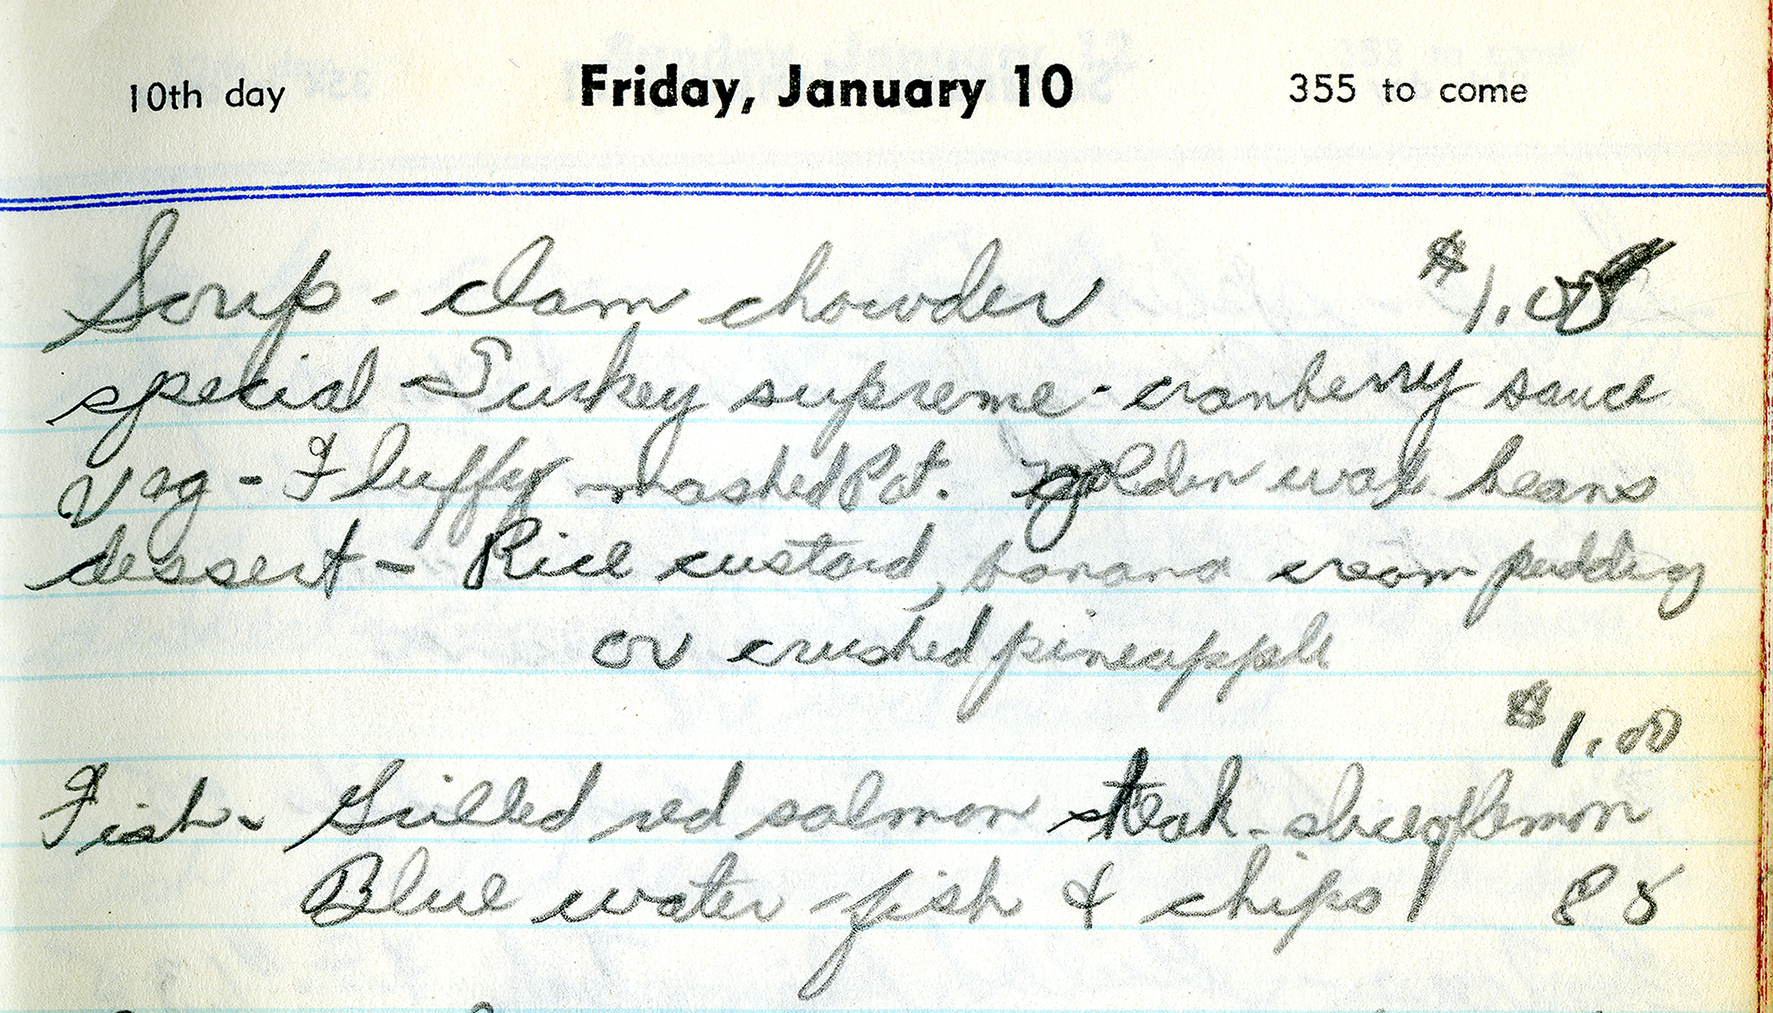 10th day Friday, January 10 355 to come
Soup - clam chowder $1.00
special - Turkey supreme - cranberry sauce
Veg - Fluffy mashed Pot. golden wax beans
dessert - Rice custard, banana cream pudding
or crushed pineapple
$1.00
Fish - Grilled red salmon steak - slice of lemon
Blue water fish & chips 85